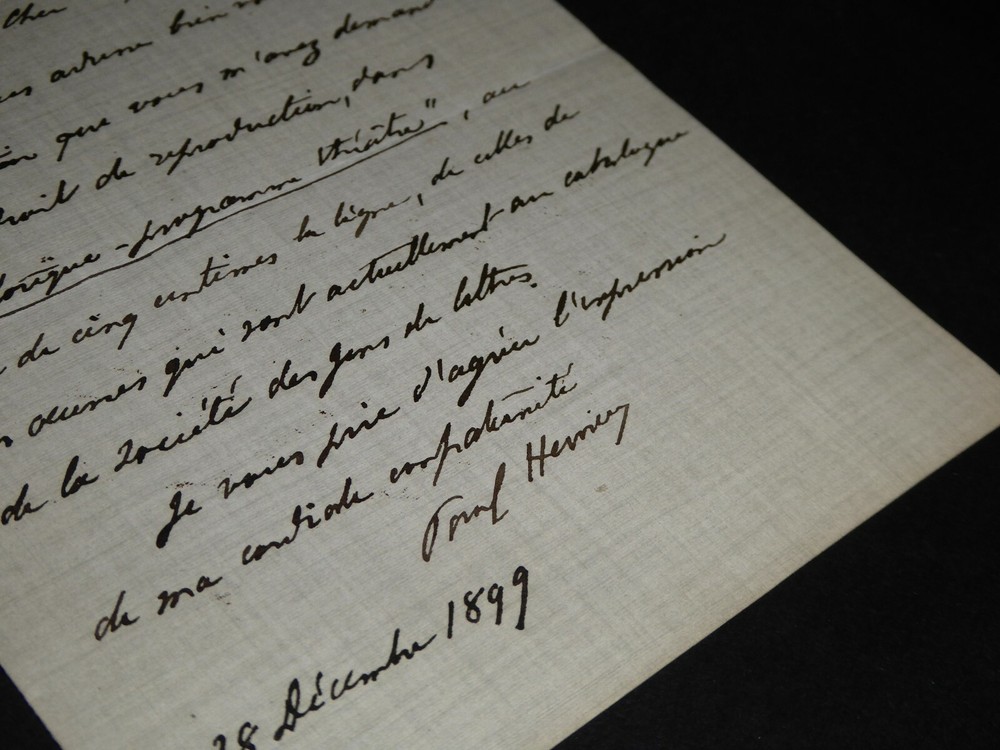 Cher
adresse bien vo
que vous m'avez demand
droit de reproduction, dans
-programme théâtre", au
de cinq centimes la ligne, de celles de
oeuvres qui sont actuellement au catalogue
de la société des gens de lettres.
Je vous prie d'agréer l'impression
de ma cordiale confraternité
Paul Hervieu
28 Décembre 1899